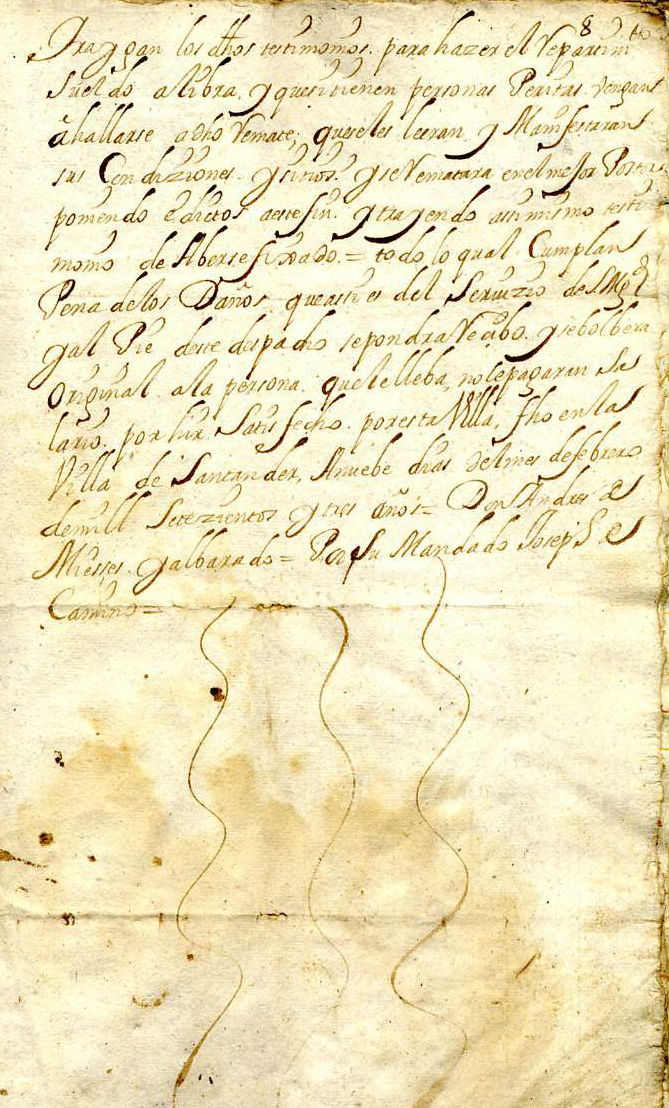 8
Traygan los dhos testimonios. para hazer el Repartim^to
sueldo a libra, y que si tienen personas Peritas vengan
â hallarse a dho Remate; que se les leeran y Manifestaran
sus Condiziones. y sitios. y se Rematara en el mejor Postor
poniendo edictos a este fin. y trayendo asi mismo testi
monio de Aberse fixado. = todo lo qual Cumplan
Pena de los Daños. que assi es del Servizio de S. Mg^d
y al Pie deste despacho se pondra Recibo. y se bolbera
Original. a la persona. que le lleba, no le pagaran Sa
lario. por hir Satisfecho por esta Villa, fho en la
Villa de Santander, A nuebe dias del mes de febrero
de mill Setezientos y tres años = Don Andres de
Miesses. y albarado = Por su Mandado Joseph de
Camino =